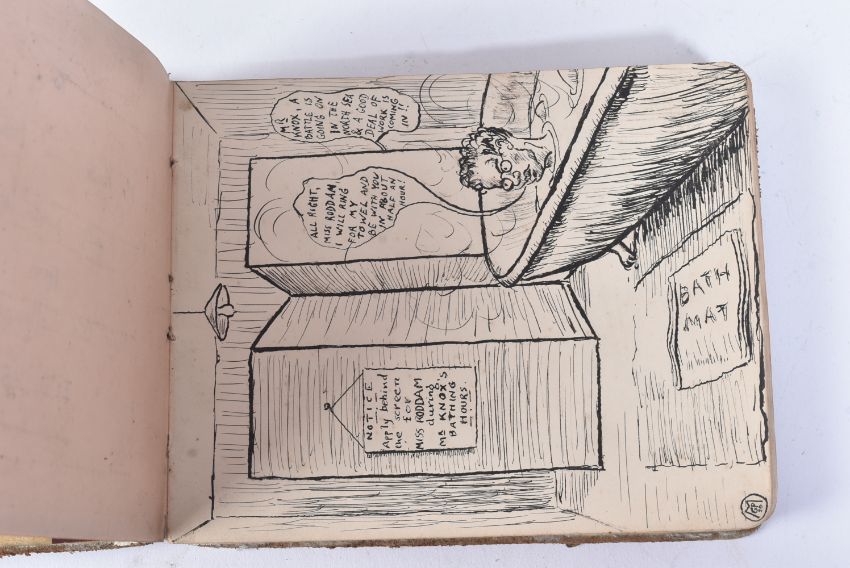 MR
KNOX, A
BATTLE IS
GOING ON
IN THE
NORTH SEA
& A GOOD
DEAL OF
WORK IS
COMING
IN!
ALL RIGHT,
MISS RODDAM
I WILL RING
FOR MY
TOWEL AND
BE WITH YOU
IN ABOUT
HALF AN
HOUR!
NOTICE
Apply behind
the screen
for
MISS RODDAM
during
MR KNOX'S
BATHING
HOURS.
BATH
MAT